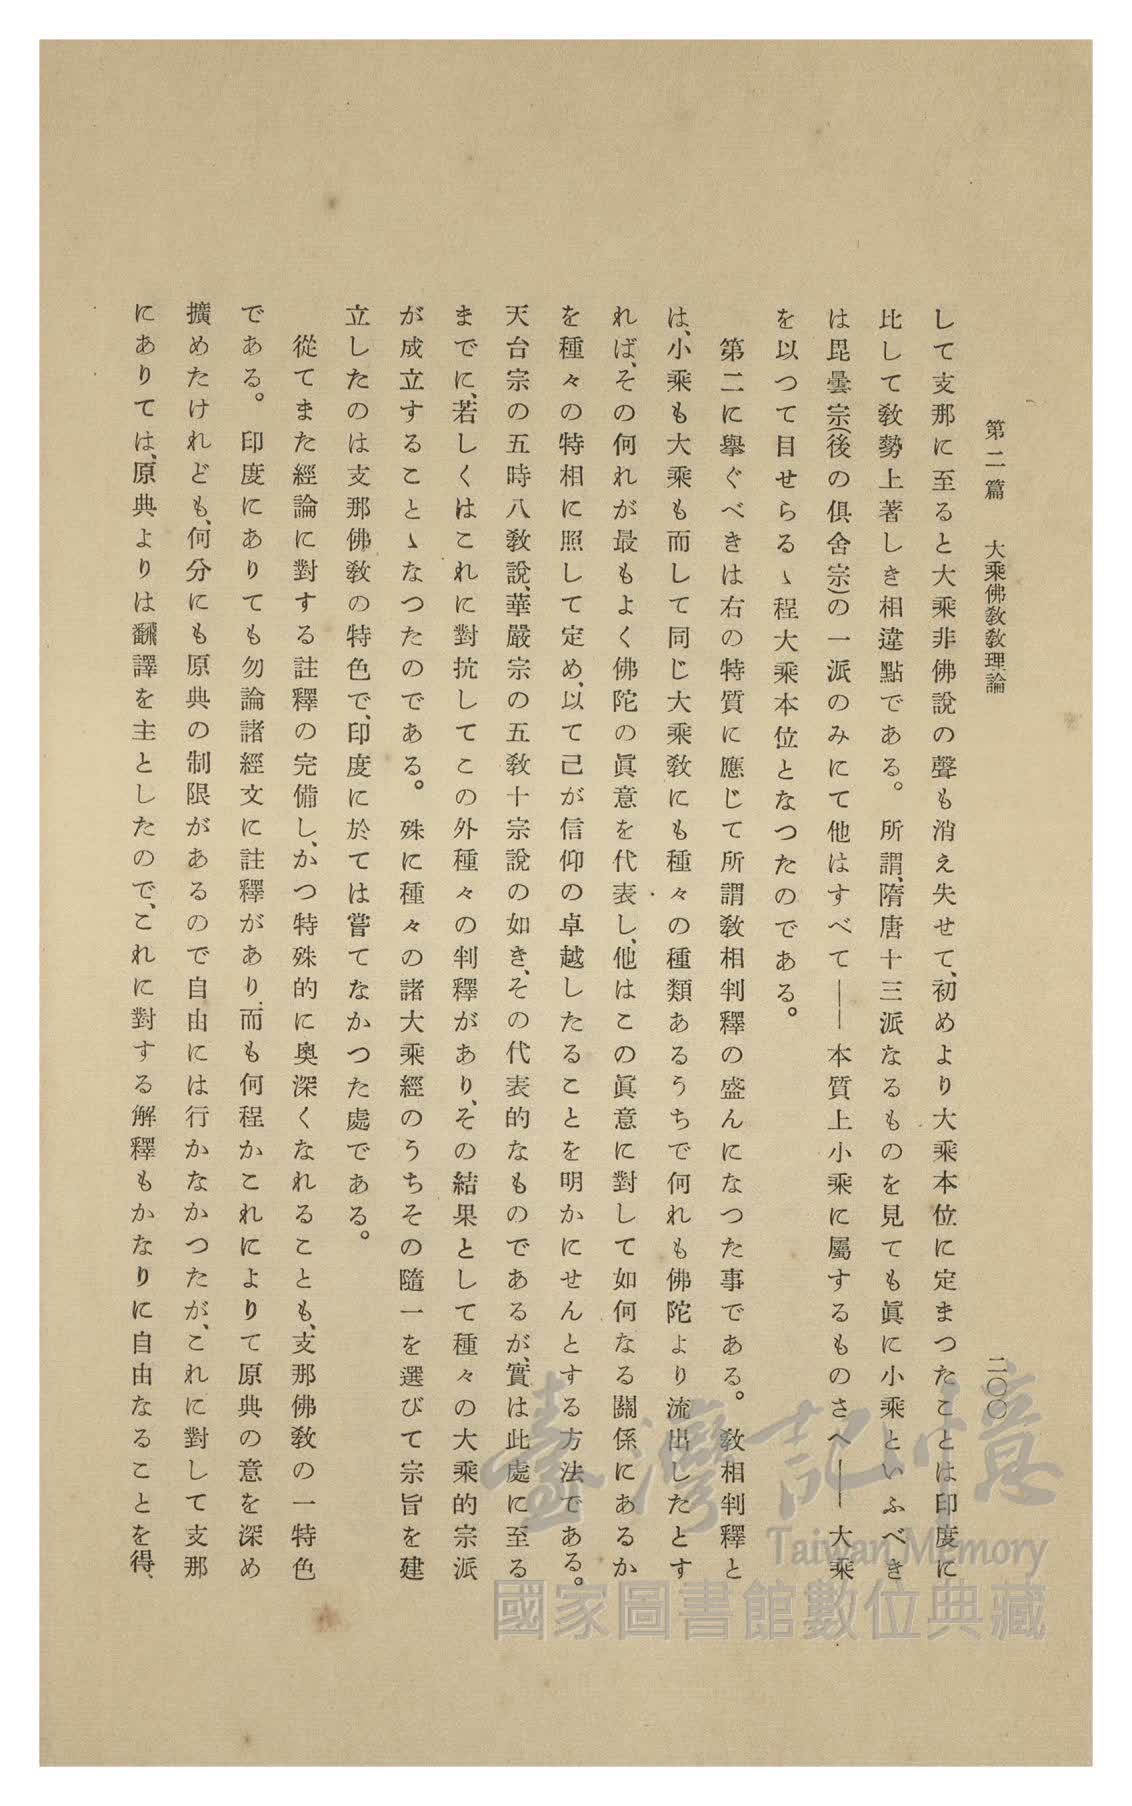 第二篇　大乘佛敎敎理論　二〇〇
して支那に至ると大乘非佛說の聲も消え失せて、初めより大乘本位に定まつたことは印度に
比して敎勢上著しき相違點である。所謂、隋唐十三派なるものを見ても眞に小乘といふべき
は毘曇宗(後の俱舍宗)の一派のみにて他はすべて——本質上小乘に屬するものさへ——大乘
を以つて目せらるゝ程大乘本位となつたのである。
第二に擧ぐべきは右の特質に應じて所謂敎相判釋の盛んになつた事である。敎相判釋と
は、小乘も大乘も而して同じ大乘敎にも種々の種類あるうちで何れも佛陀より流出したとす
れば、その何れが最もよく佛陀の眞意を代表し、他はこの眞意に對して如何なる關係にあるか
を種々の特相に照して定め、以て己が信仰の卓越したることを明かにせんとする方法である。
天台宗の五時八敎說、華嚴宗の五敎十宗說の如き、その代表的なものであるが、實は此處に至る
までに、若しくはこれに對抗してこの外種々の判釋があり、その結果として種々の大乘的宗派
が成立することゝなつたのである。殊に種々の諸大乘經のうちその隨一を選びて宗旨を建
立したのは支那佛敎の特色で、印度に於ては嘗てなかつた處である。
從てまた經論に對する註釋の完備し、かつ特殊的に奧深くなれることも、支那佛敎の一特色
である。印度にありても勿論諸經文に註釋があり、而も何程かこれによりて原典の意を深め
擴めたけれども、何分にも原典の制限があるので自由には行かなかつたが、これに對して支那
にありては、原典よりは飜譯を主としたので、これに對する解釋もかなりに自由なることを得、
臺灣記憶
Taiwan Memory
國家圖書館數位典藏